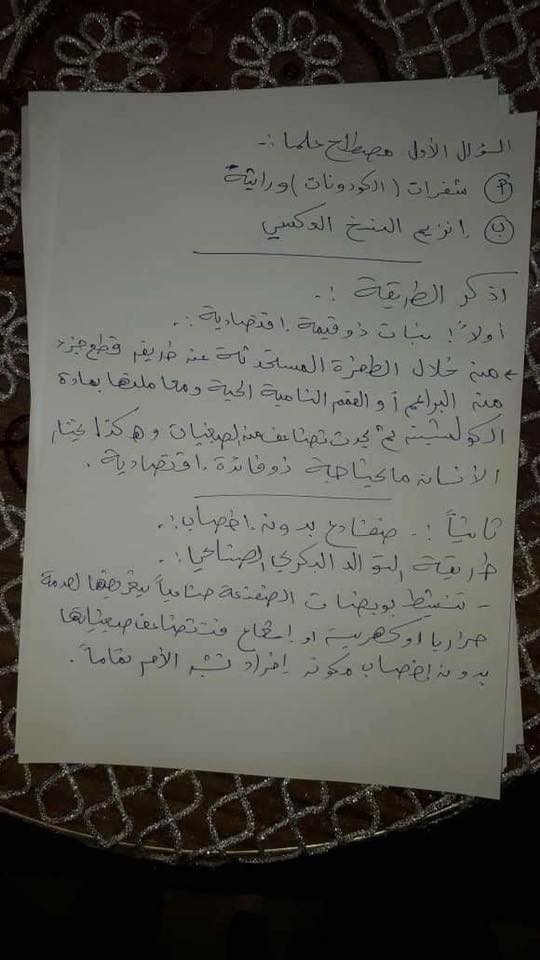 السؤال الأول مصطلح علمى :-
(P) شفرات (الكودونات) وراثية
(ب) إنزيم النسخ العكسي
اذكر الطريقة :-
أولاً : نبات ذو قيمة اقتصادية :.
← من خلال الطفرة المستحدثة عن طريق قطع جزء
من البراعم أو القمم النامية الحية ومعاملتها بمادة
الكولشيسين ثم يحدث تضاعف الصبغيات وهكذا يختار
الأنسان ما يحتاجة ذو فائدة اقتصادية .
ثانياً :- ضفادع بدون إخصاب :.
طريقة التوالد البكري الصناعي :.
- تنشيط بويضات الضفدعة صناعياً بتعرضها لصدمة
حرارية او كهربية او إشعاع فتتضاعف صبغياتها
بدون إخصاب مكونه افراد تشبه الأم تماماً .